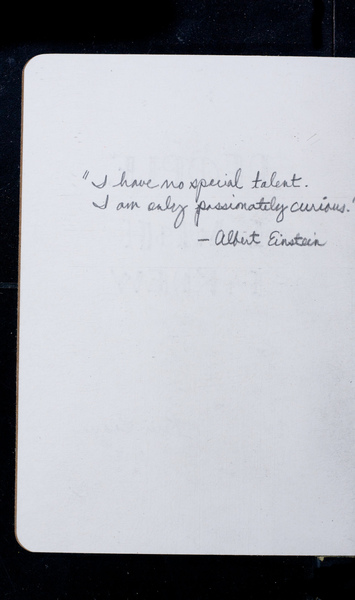 "I have no special talent.
I am only passionately curious."
- Albert Einstein